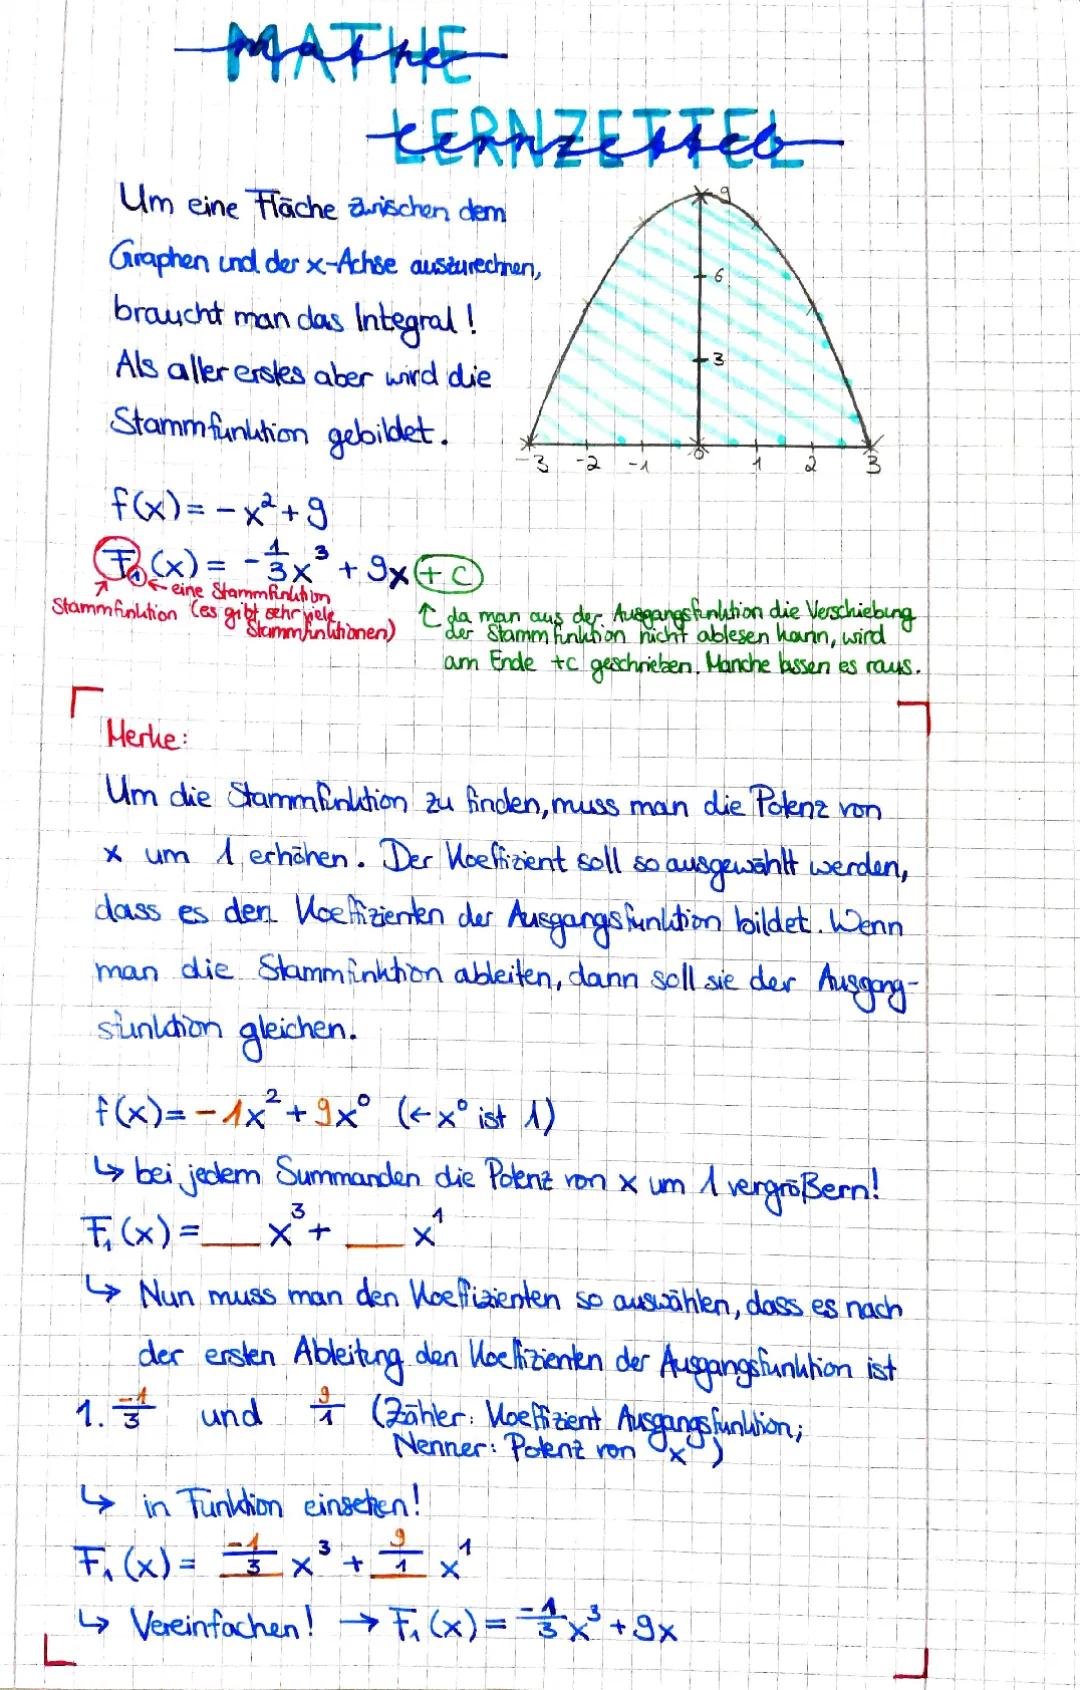 MATHE
LERNZETTEL
Um eine Fläche zwischen dem
Graphen und der x-Achse auszurechnen,
braucht man das Integral!
Als aller erstes aber wird die
Stammfunktion gebildet.
9
6
3
-3 -2 -1 0 1 2 3
f(x) = -x² + 9
F₁(x) = -1/3 x³ + 9x + C
← eine Stammfunktion
Stammfunktion (es gibt sehr viele
Stammfunktionen)
↑ da man aus der Ausgangsfunktion die Verschiebung
der Stammfunktion nicht ablesen kann, wird
am Ende +c geschrieben. Manche lassen es raus.
Merke:
Um die Stammfunktion zu finden, muss man die Potenz von
x um 1 erhöhen. Der Koeffizient soll so ausgewählt werden,
dass es den Koeffizienten der Ausgangsfunktion bildet. Wenn
man die Stammfunktion ableiten, dann soll sie der Ausgang-
sfunktion gleichen.
f(x) = -1x² + 9x⁰ (← x⁰ ist 1)
↳ bei jedem Summanden die Potenz von x um 1 vergrößern!
F₁(x) = __ x³ + __ x¹
↳ Nun muss man den Koeffizienten so auswählen, dass es nach
der ersten Ableitung den Koeffizienten der Ausgangsfunktion ist
1. -1/3 und 9/1 (Zähler: Koeffizient Ausgangsfunktion;
Nenner: Potenz von x)
↳ in Funktion einsetzen!
F₁(x) = -1/3 x³ + 9/1 x¹
↳ Vereinfachen! → F₁(x) = -1/3 x³ + 9x